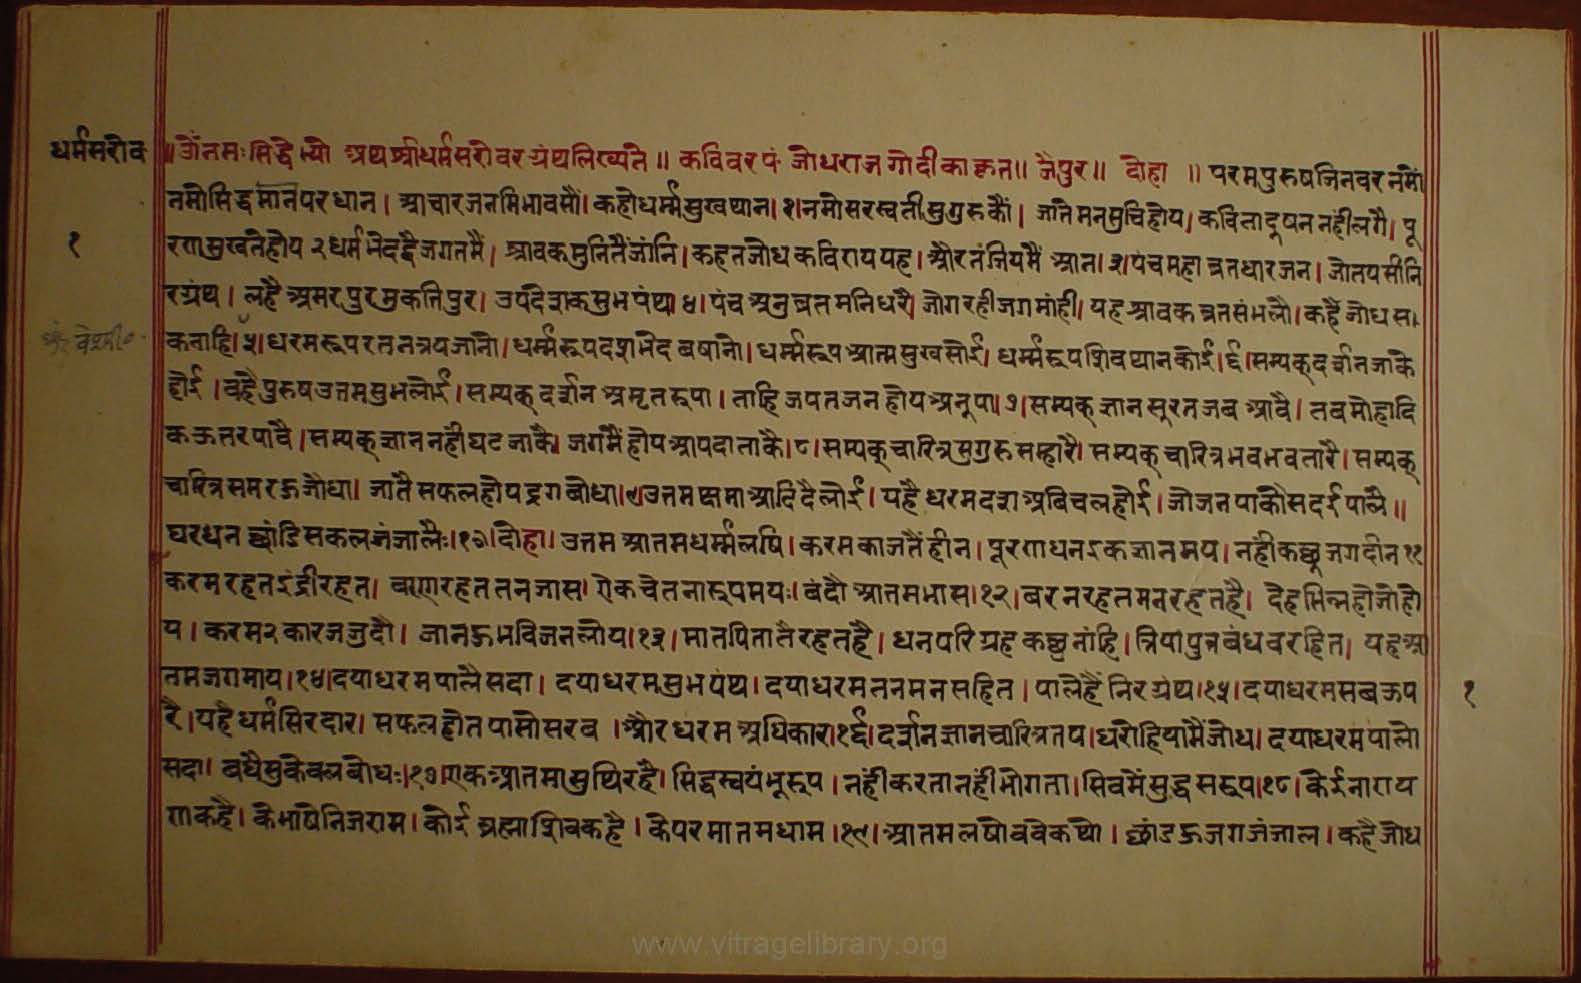 धर्मसरोव
॥ ॐनमःसिद्धेभ्यो अथश्रीधर्मसरोवरग्रंथलिख्यते ॥ कविवरपं॰ जोधराजगोदीकाकृत॥ जैपुर॥ दोहा ॥ परमपुरुषजिनवरनमो
नमोसिद्धमानपरधान। आचारजनमिभावसौं। कहोधर्म्मसुखथान।१।नमोसरस्वतीसुगुरुकौं। जातेमनसुचिहोय। कवितादूषननहीलगै। पू
१
रणसुखतेहोय २ धर्मभेदद्वैजगतमैं। श्रावकमुनितैंजांनि। कहतजोधकविराययह। औरनंजियमैं आन।३।पंचमहाव्रतधारजन। जोतपसीनि
रग्रंथ। लहैअमरपुरमुकतिपुर। उपदेशकसुभपंथ।४।पंचअनुव्रतमनिधरौ। जोगरहीजगमांही। यहश्रावकव्रतसंभलौ। कहैंजोधस
कनाहि।५।धरमरूपरतनत्रयजांनो। धर्म्मरूपदशभेदबषानो। धर्म्मरूपआत्मसुखसोई। धर्म्मरूपशिवथानकोई।६।सम्यक्दर्शनजाके
होई। वहैपुरुषउत्तमसुभलोई। सम्यक्दर्शनअमृतरूपा। ताहिजपतजनहोयअनूपा।७।सम्यक्ज्ञानसूरतजबआवै। तबमोहादि
कऊतरपावै। सम्यक्ज्ञाननहीघटजाकै। जगमैंहोयआपदाताकै।८।सम्यक्चारित्रसुगुरुसम्हारै। सम्यक्चारित्रभवभवतारै। सम्यक्
चारित्रसमरऊजोधा। जातैसफलहोयद्रगबोधा।९।उत्तमक्षमाआदिदैलोई। यहैधरमदशअबिचलहोई। जोजनपाकौसदईपालै॥
घरधनछांडिसकलजंजालैः।१०।दोहा। उत्तमआतमधर्म्मलषि। करमकाजतैंहीन। पूरणधनइकज्ञानमय। नहींकछूजगदीन११
करमरहतइंद्रीरहत। बरणरहततनजास। ऐकचेतनारूपमयः। बंदौआतमभास।१२।बरनरहतमनरहतहै। देहभिन्नहोजोहो
य। करम२कारजजुदौ। जानऊभविजनलोय।१३।मातपितातैरहतहै। धनपरिग्रहकछुनांहि। त्रियापुत्रबंधवरहित। यहआ
तमजगमाय।१४।दयाधरमपालैसदा। दयाधरमसुभपंथ। दयाधरमतनमनसहित। पालैहैंनिरग्रंथ।१५।दयाधरमसबऊप
१
रै। यहैधर्मसिरदार। सफलहोतपासोसरब । औरधरमअधिकार।१६।दर्शनज्ञानचारित्रतप। धरोहियामैंजोध। दयाधरमपालो
सदा। बधैसुकेवलबोधः।१७।एकआतमासुथिरहै। सिद्धस्वयंभूरूप। नहींकरतानहींभोगता। सिवमेंसुद्धसरूप।१८। केईनाराय
णकहै। केभाषेनिजराम। कोईब्रह्माशिवकहै। केपरमातमधाम।१९।आतमलषोववेकथो। छांडऊजगजंजाल। कहैजोध
www.vitragelibrary.org